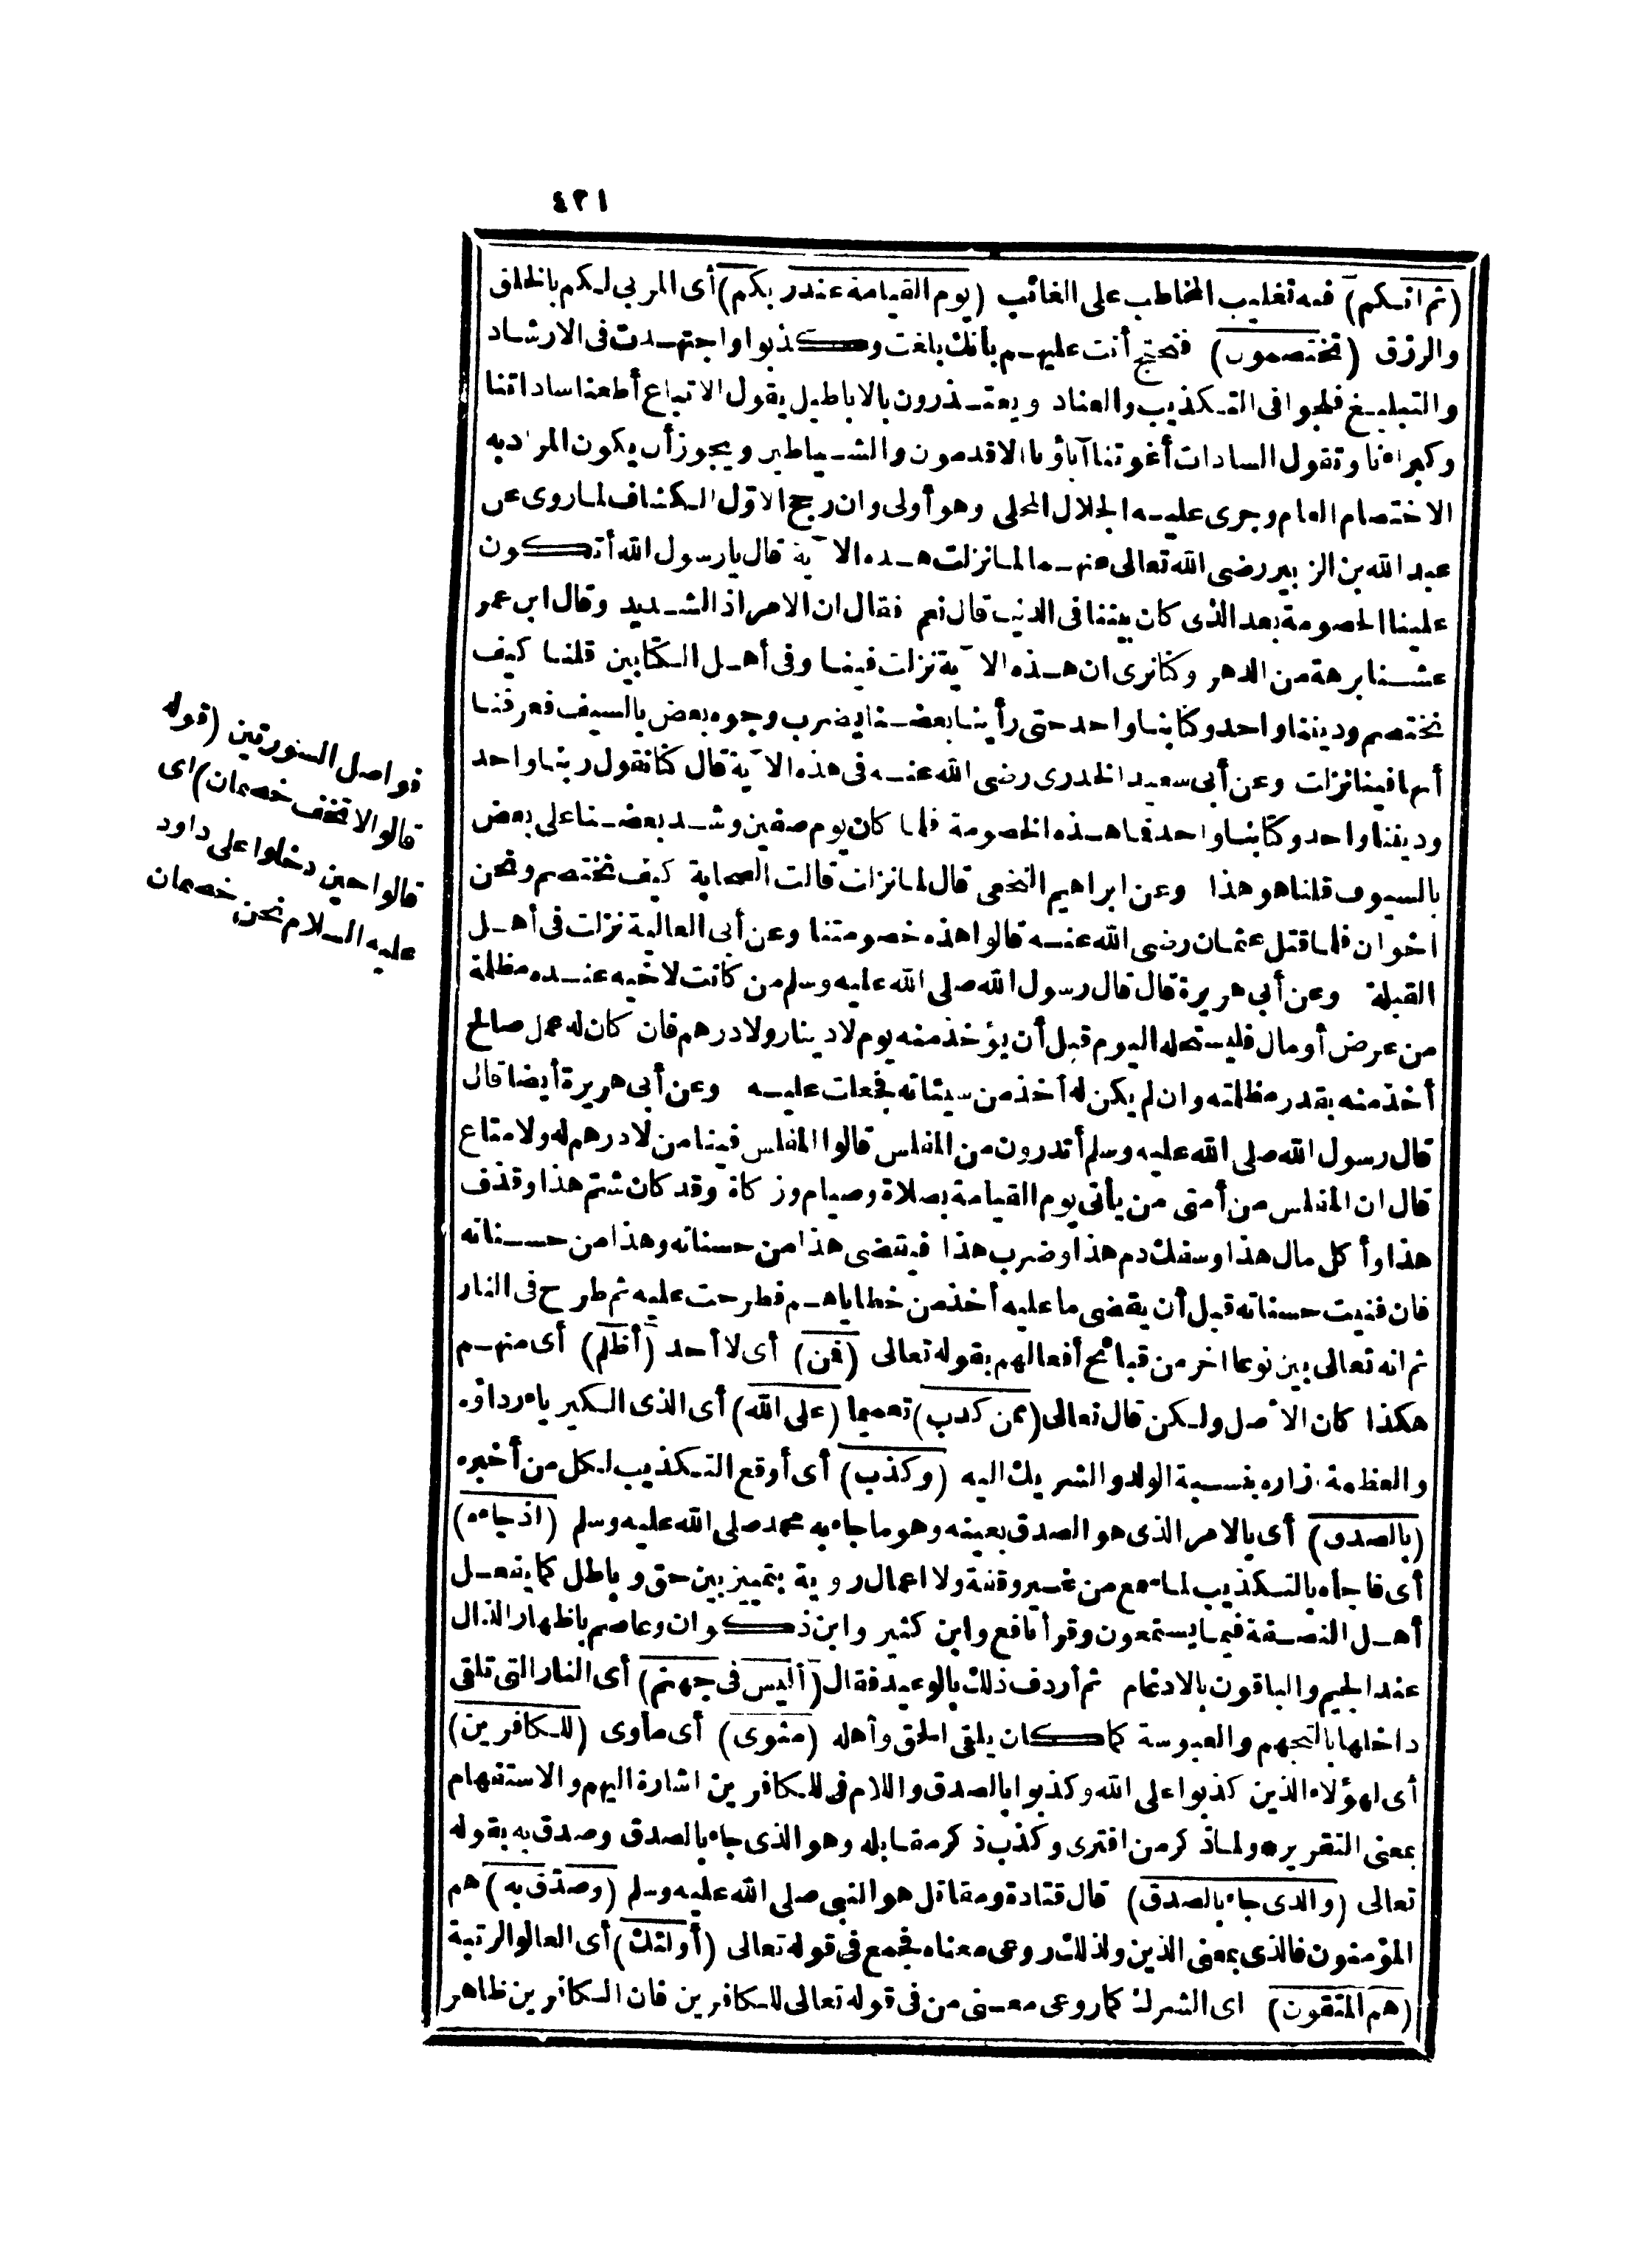 ٤٣١
(ثم انكم) فيه تغليب المخاطب على الغائب (يوم القيامة عند ربكم) أى المربي لكم بالخلق
والرزق (تختصمون) فتحتج أنت عليهم بأنك بلغت وكذبوا واجتهدت فى الارشاد
والتبليغ فلجوا فى التكذيب والعناد ويعتذرون بالاباطيل يقول الاتباع أطعنا ساداتنا
وكبراءنا وتقول السادات أغوتنا آباؤنا الاقدمون والشياطين ويجوز أن يكون المراد به
الاختصام العام وجرى عليه الجلال المحلى وهو أولى وان رجح الاوّل الكشاف لما روى عن
عبد الله بن الزبير رضى الله تعالى عنهما لما نزلت هذه الآية قال يا رسول الله أتكون
علينا الخصومة بعد الذى كان بيننا فى الدنيا قال نعم فقال ان الامر اذا لشديد وقال ابن عمر
عشنا برهة من الدهر وكنا نرى ان هذه الآية نزلت فينا وفى أهل الكتابين قلنا كيف
نختصم وديننا واحد وكتابنا واحد حتى رأينا بعضنا يضرب وجوه بعض بالسيف فعرفنا
أنها فينا نزلت وعن أبى سعيد الخدرى رضى الله عنه فى هذه الآية قال كنا نقول ربنا واحد
وديننا واحد وكتابنا واحد فما هذه الخصومة فلما كان يوم صفين وشد بعضنا على بعض
بالسيوف قلنا هو هذا وعن ابراهيم النخعى قال لما نزلت قالت الصحابة كيف نختصم ونحن
اخوان فلما قتل عثمان رضى الله عنه قالوا هذه خصومتنا وعن أبى العالية نزلت فى أهل
القبلة وعن أبي هريرة قال قال رسول الله صلى الله عليه وسلم من كانت لاخيه عنده مظلمة
من عرض أو مال فليستحله اليوم قبل أن يؤخذ منه يوم لا دينار ولا درهم فان كان له عمل صالح
أخذ منه بقدر مظلمته وان لم يكن له أخذ من سيئاته فجعلت عليه وعن أبى هريرة أيضا قال
قال رسول الله صلى الله عليه وسلم أتدرون من المفلس قالوا المفلس فينا من لا درهم له ولا متاع
قال ان المفلس من أمتى من يأتى يوم القيامة بصلاة وصيام وزكاة وقد كان شتم هذا وقذف
هذا وأكل مال هذا وسفك دم هذا وضرب هذا فيقضى هذا من حسناته وهذا من حسناته
فان فنيت حسناته قبل أن يقضى ما عليه أخذ من خطاياهم فطرحت عليه ثم طرح فى النار
ثم انه تعالى بين نوعا اخر من قبائح أفعالهم بقوله تعالى (فمن) أى لا أحد (أظلم) أى منهم
هكذا كان الاصل ولكن قال تعالى (ممن كذب) تعميما (على الله) أى الذى الكبرياء رداؤه
والعظمة ازاره بنسبة الولد والشريك اليه (وكذب) أى أوقع التكذيب لكل من أخبره
(بالصدق) أى بالامر الذى هو الصدق بعينه وهو ما جاء به محمد صلى الله عليه وسلم (اذ جاءه)
أى فاجأه بالتكذيب لما سمع من غير وقفة ولا اعمال روية بتمييز بين حق وباطل كما يفعل
أهل النصفة فيما يستمعون وقرأ نافع وابن كثير وابن ذكوان وعاصم باظهار الذال
عند الجيم والباقون بالادغام ثم أردف ذلك بالوعيد فقال (أليس فى جهنم) أى النار التى تلقى
داخلها بالتجهم والعبوسة كما كان يلقى الحق وأهله (مثوى) أى مأوى (للكافرين)
أى لهؤلاء الذين كذبوا على الله وكذبوا بالصدق واللام فى للكافرين اشارة اليهم والاستفهام
بمعنى التقرير * ولما ذكر من افترى وكذب ذكر مقابله وهو الذى جاء بالصدق وصدق به بقوله
تعالى (والذى جاء بالصدق) قال قتادة ومقاتل هو النبى صلى الله عليه وسلم (وصدّق به) هم
المؤمنون فالذى بمعنى الذين ولذلك روعى معناه فجمع فى قوله تعالى (أولئك) أى العالو الرتبة
(هم المتقون) اى الشرك كما روعى معنى من فى قوله تعالى للكافرين فان الكافرين ظاهر
فواصل السورتين (قوله
قالوا لا تخف خصمان) اى
قالوا حين دخلوا على داود
عليه السلام نحن خصمان